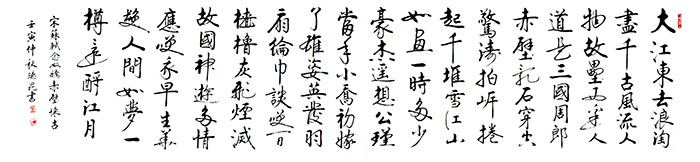 大江東去浪淘
盡千古風流人
物故壘西邊人
道是三國周郎
赤壁亂石穿空
驚濤拍岸捲
起千堆雪江山
如畫一時多少
豪杰遙想公瑾
當年小喬初嫁
了雄姿英發羽
扇綸巾談笑間
檣櫓灰飛煙滅
故國神遊多情
應笑我早生華
髮人間如夢一
樽還酹江月
宋蘇軾念奴嬌赤壁懷古
壬寅仲秋書